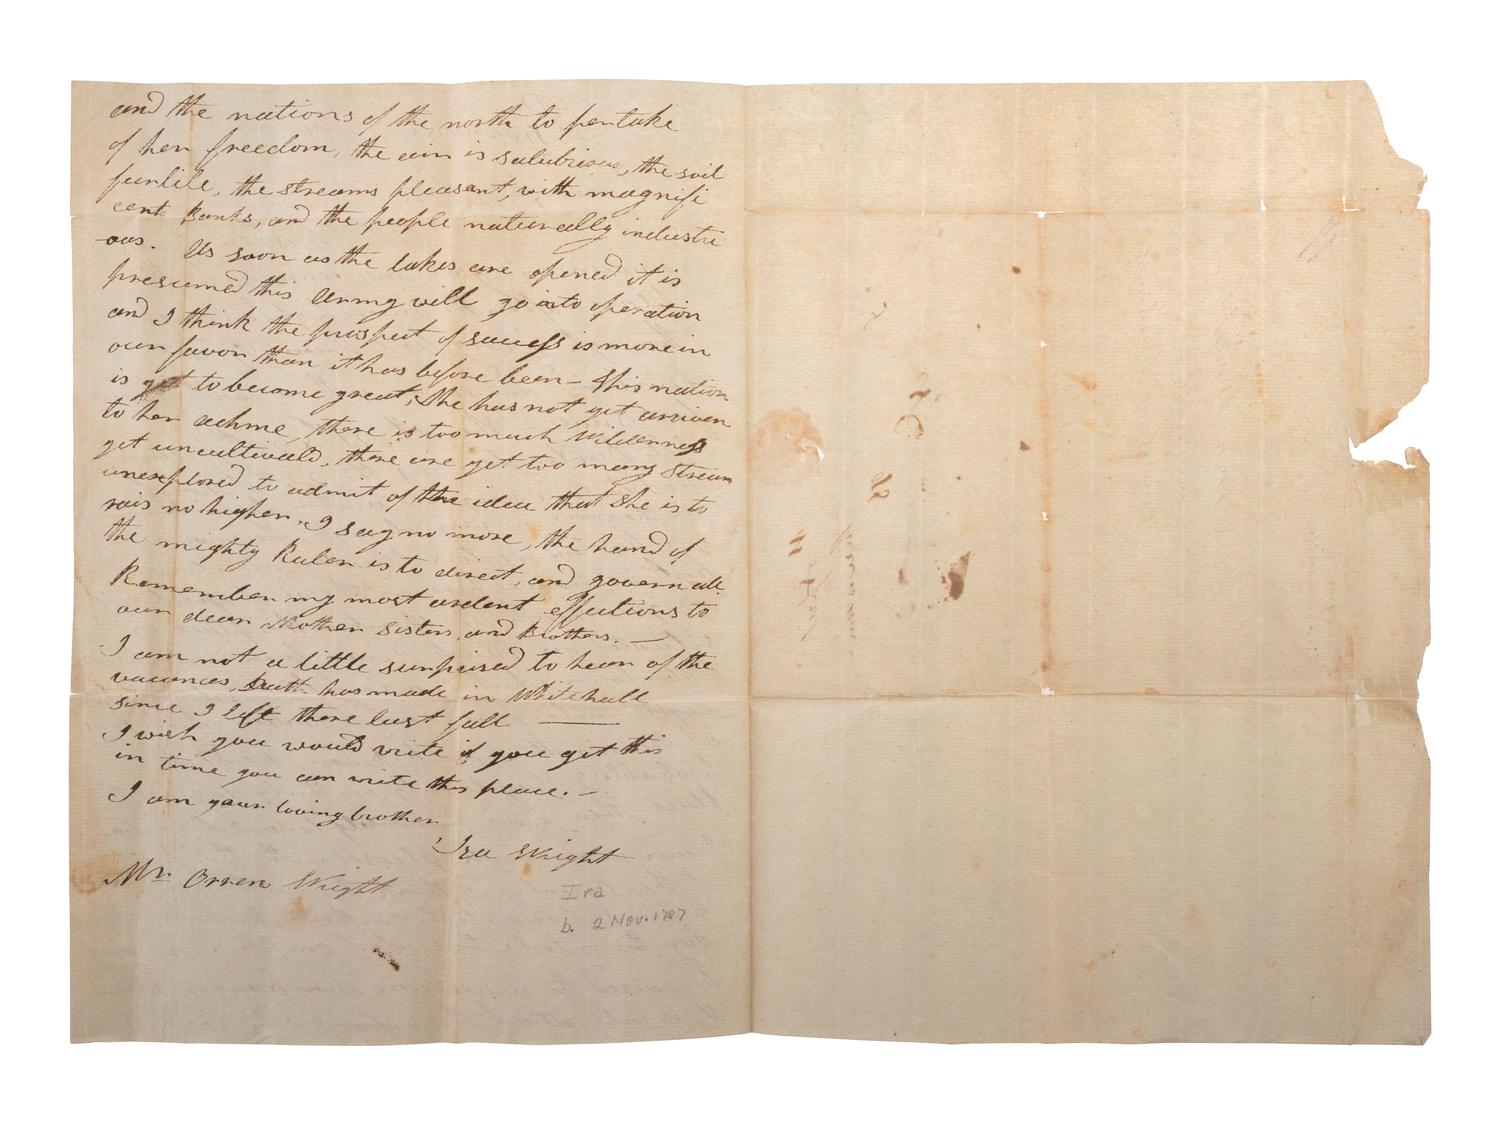 and the nations of the north to pertake
of her freedom, the air is salubrious, the soil
furtile, the streams pleasant, with magnifi
cent Banks, and the people naturally industri
ous. As soon as the lakes are opened it is
presumed this Army will go into operation
and I think the prospect of success is more in
our favor than it has before been - This nation
is yet to become great, She has not yet arriven
to her achme, there is too much Wilderness
yet uncultivald, there are yet too many Stream
unexplored to admit of the idea that She is to
rais no higher. I say no more, the hand of
the mighty Ruler is to direct, and govern all.
Remember my most ardent affections to
our dear Mother Sisters, and Brothers. —
I am not a little surprised to hear of the
vacances, Death has made in Whitehall
since I left there last fall —
I wish you would write if you get this
in time you can write this place. —
I am your loving brother
Ira Wright
Mr Orren Wright
Ira
b. 2 Nov. 1787